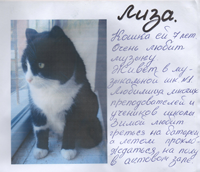 Лиза.
Кошка ей 7 лет
Очень любит
музыку
Живёт в му-
зыкальной шк №1
Любимица многих
преподователей и
учеников школы
Зимой любит
греться на батарее,
а летом прохла-
ждаться, на полу
в актовом зале